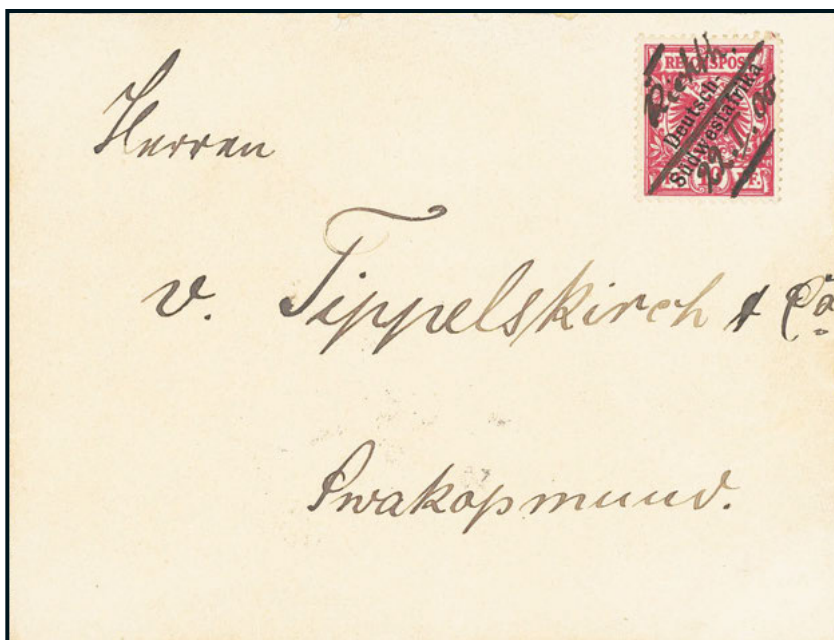 Herren
v. Tippelskirch & Co
Swakopmund.
REICHSPOST
Deutsch-
Südwestafrika
10
Richth.
22.